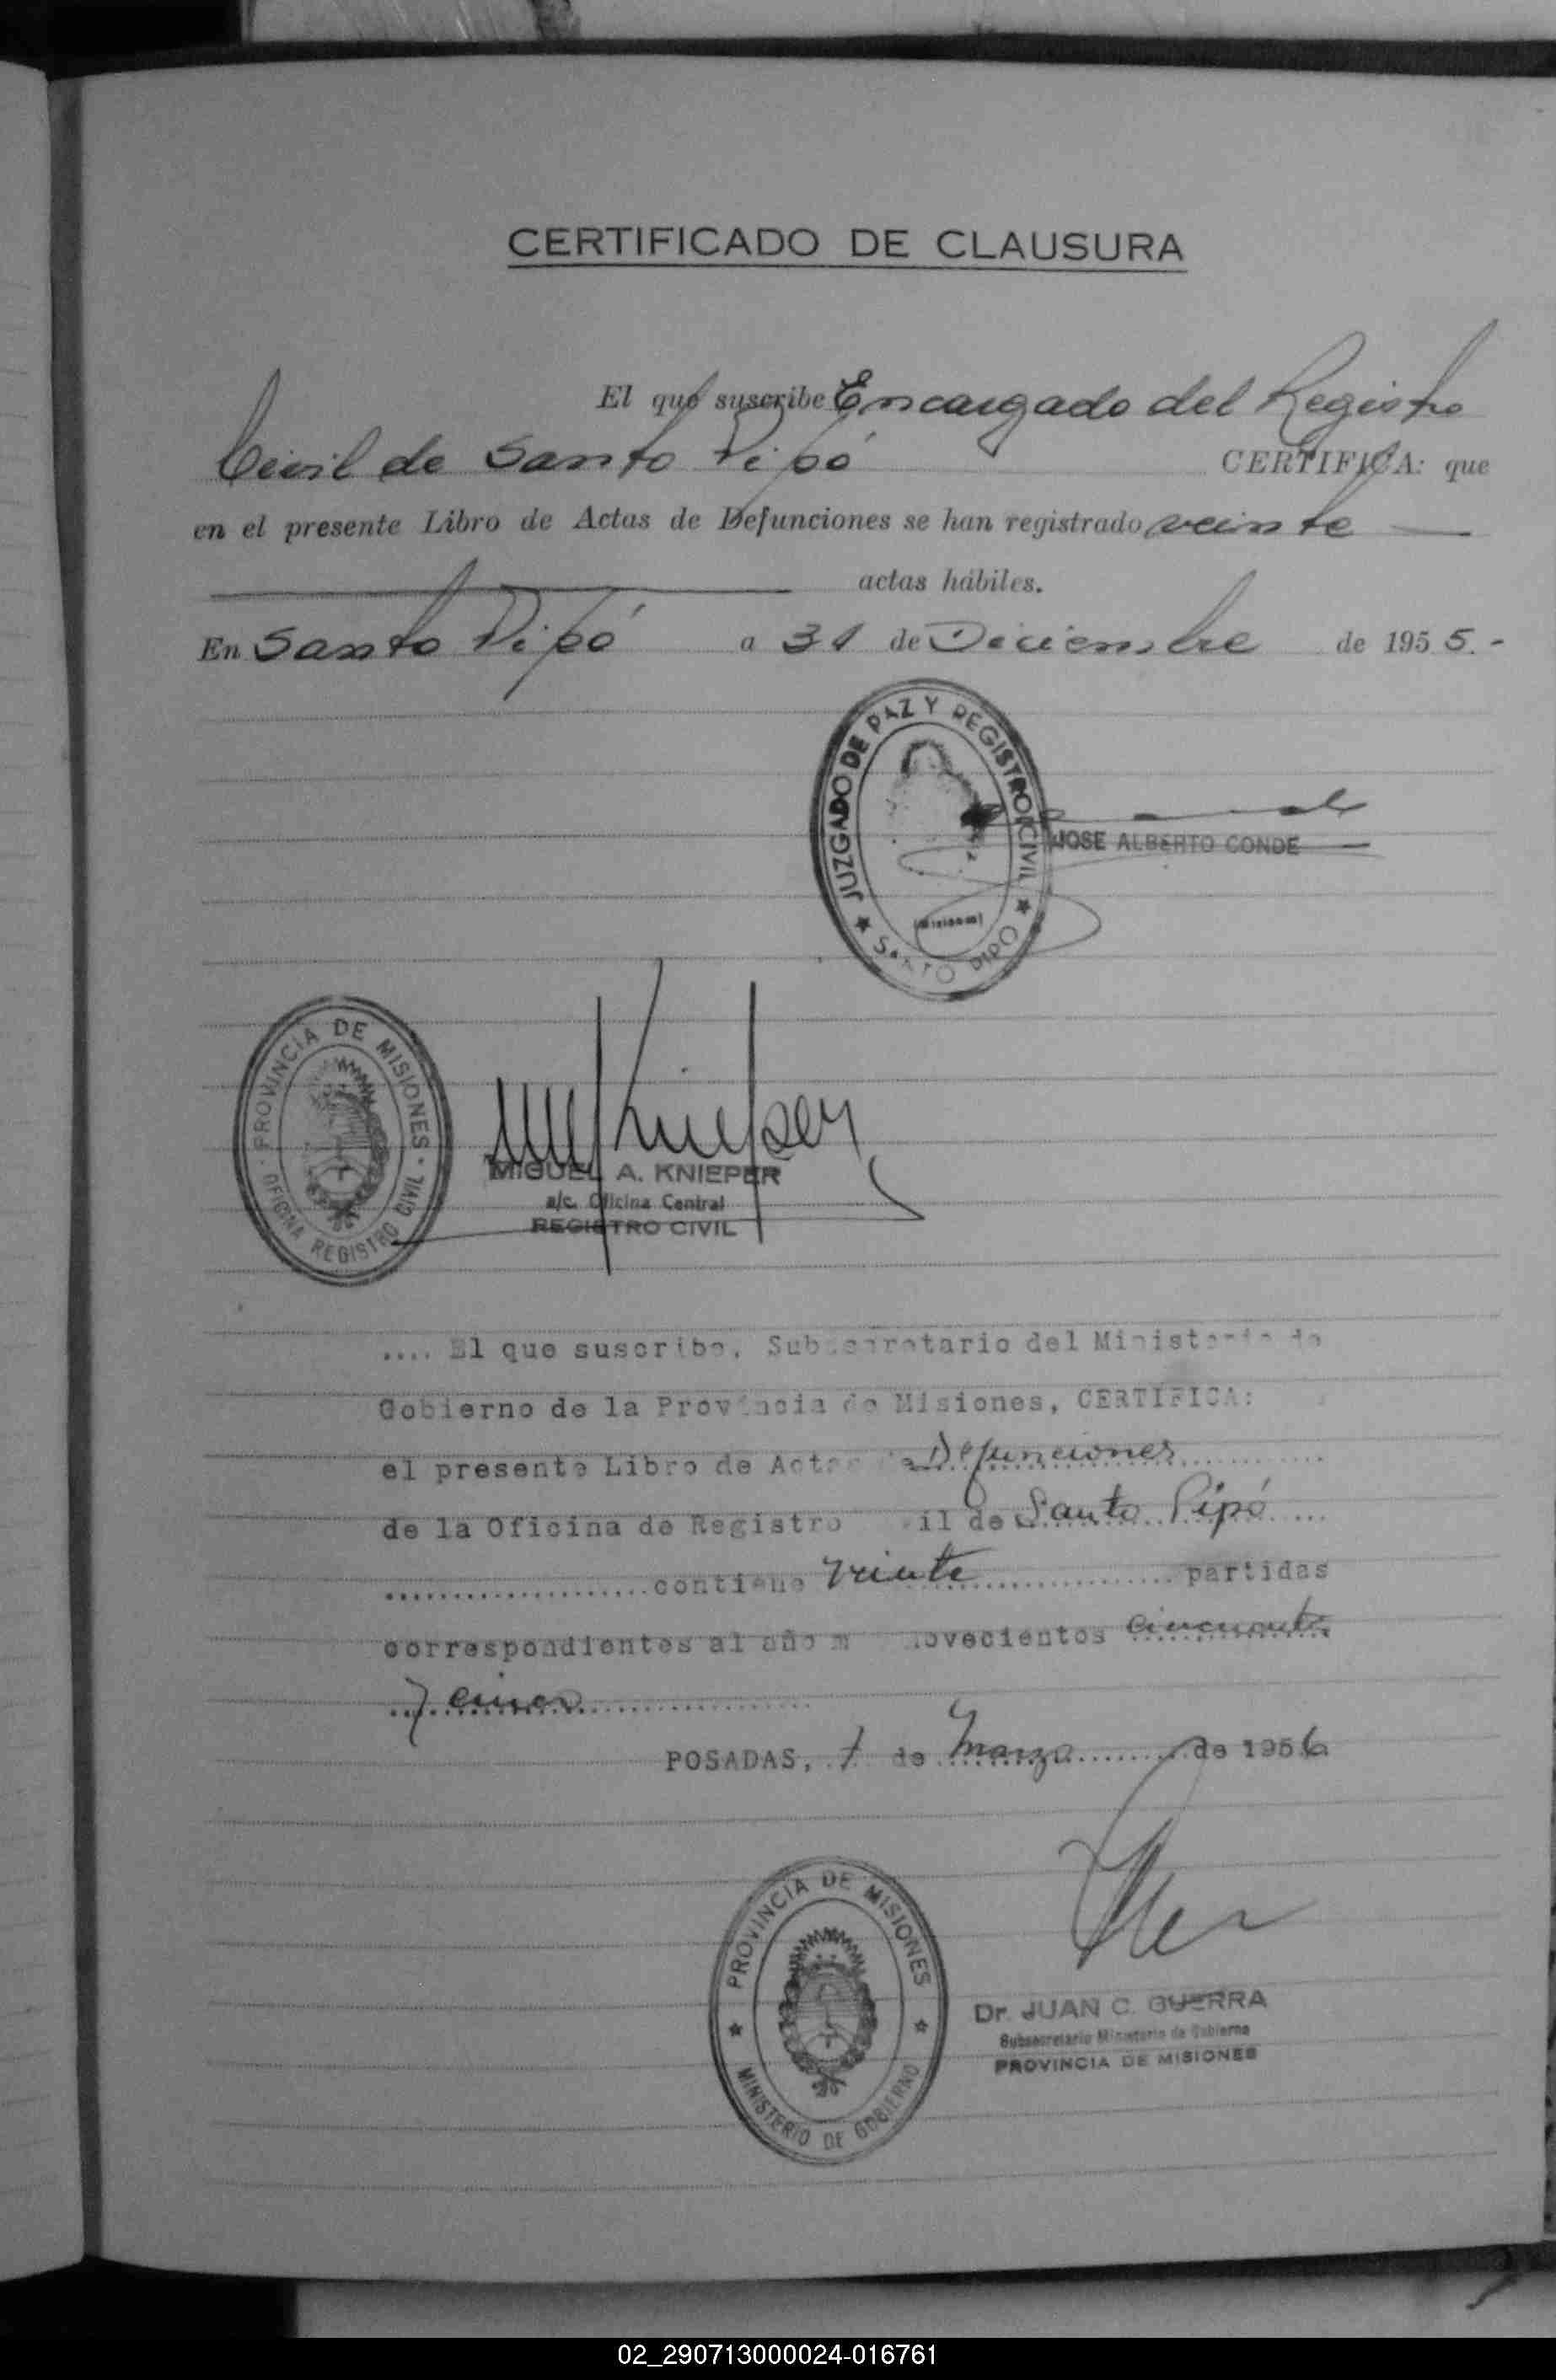 CERTIFICADO DE CLAUSURA
El que suscribe Encargado del Registro
Civil de Santo Pipó CERTIFICA: que
en el presente Libro de Actas de Defunciones se han registrado veinte
actas hábiles.
En Santo Pipó a 31 de Diciembre de 1955.-
JUZGADO DE PAZ Y REGISTRO CIVIL
(Misiones)
SANTO PIPO
JOSE ALBERTO CONDE
PROVINCIA DE MISIONES
OFICINA REGISTRO CIVIL
MKnieper
MIGUEL A. KNIEPER
a/c. Oficina Central
REGISTRO CIVIL
.... El que suscribe, Subsecretario del Ministerio de
Gobierno de la Provincia de Misiones, CERTIFICA:
el presente Libro de Actas de Defunciones
de la Oficina de Registro vil de Santo Pipó
contiene veinte partidas
correspondientes al año m novecientos cincuenta
y cinco
POSADAS, 1 de Marzo de 1956
PROVINCIA DE MISIONES
MINISTERIO DE GOBIERNO
Dr. JUAN C. GUERRA
Subsecretario Ministerio de Gobierno
PROVINCIA DE MISIONES
02_290713000024-016761